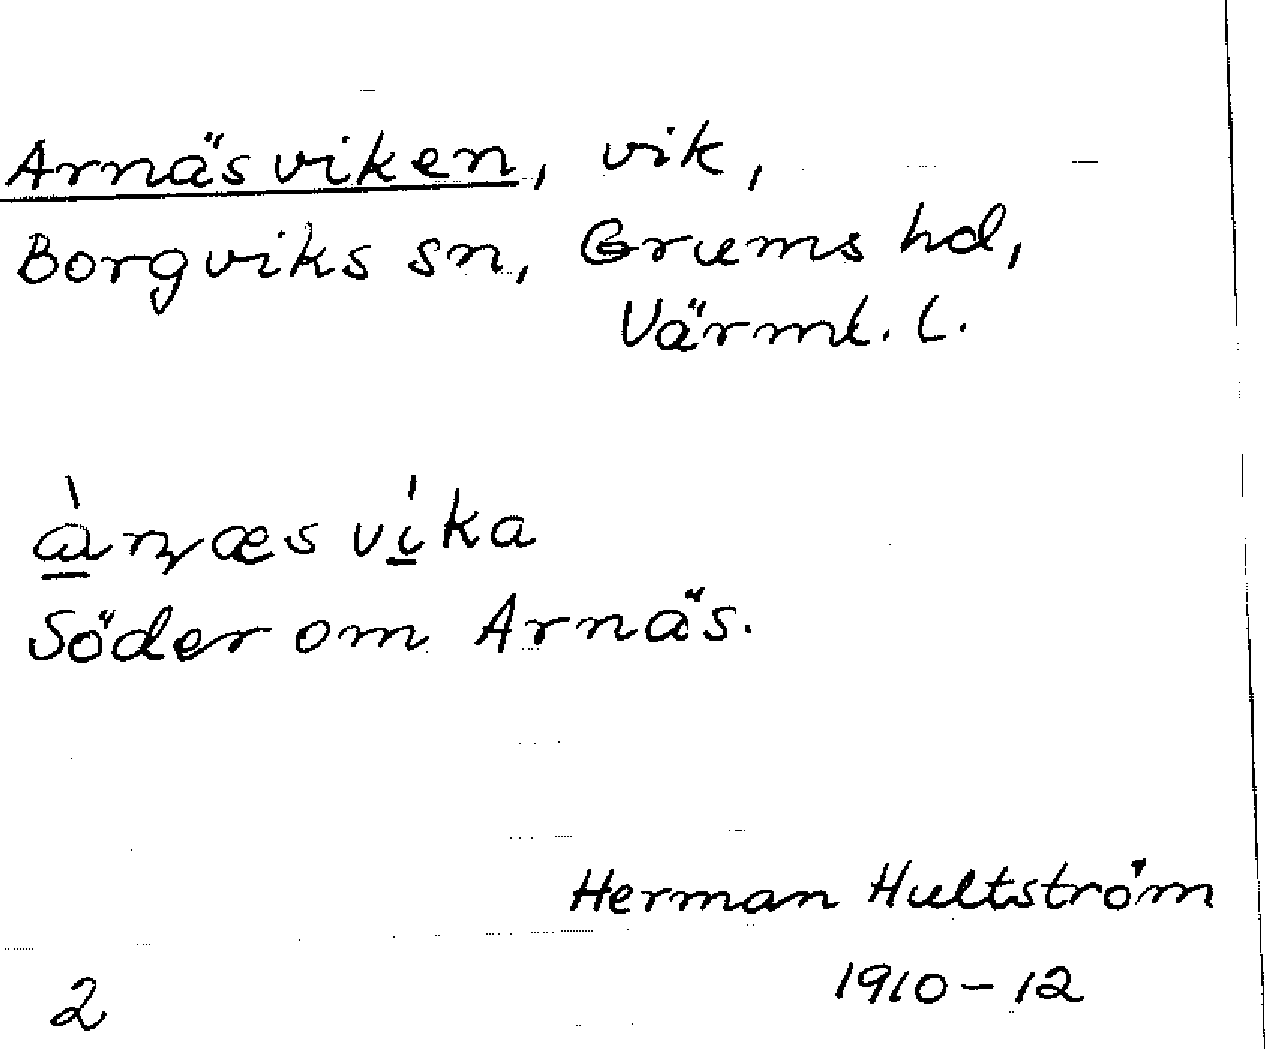 Arnäsviken, vik,
Borgviks sn, Grums hd,
Värml. l.
à̱ɳæsví̱ka
Söder om Arnäs.
Herman Hultström
1910-12
2